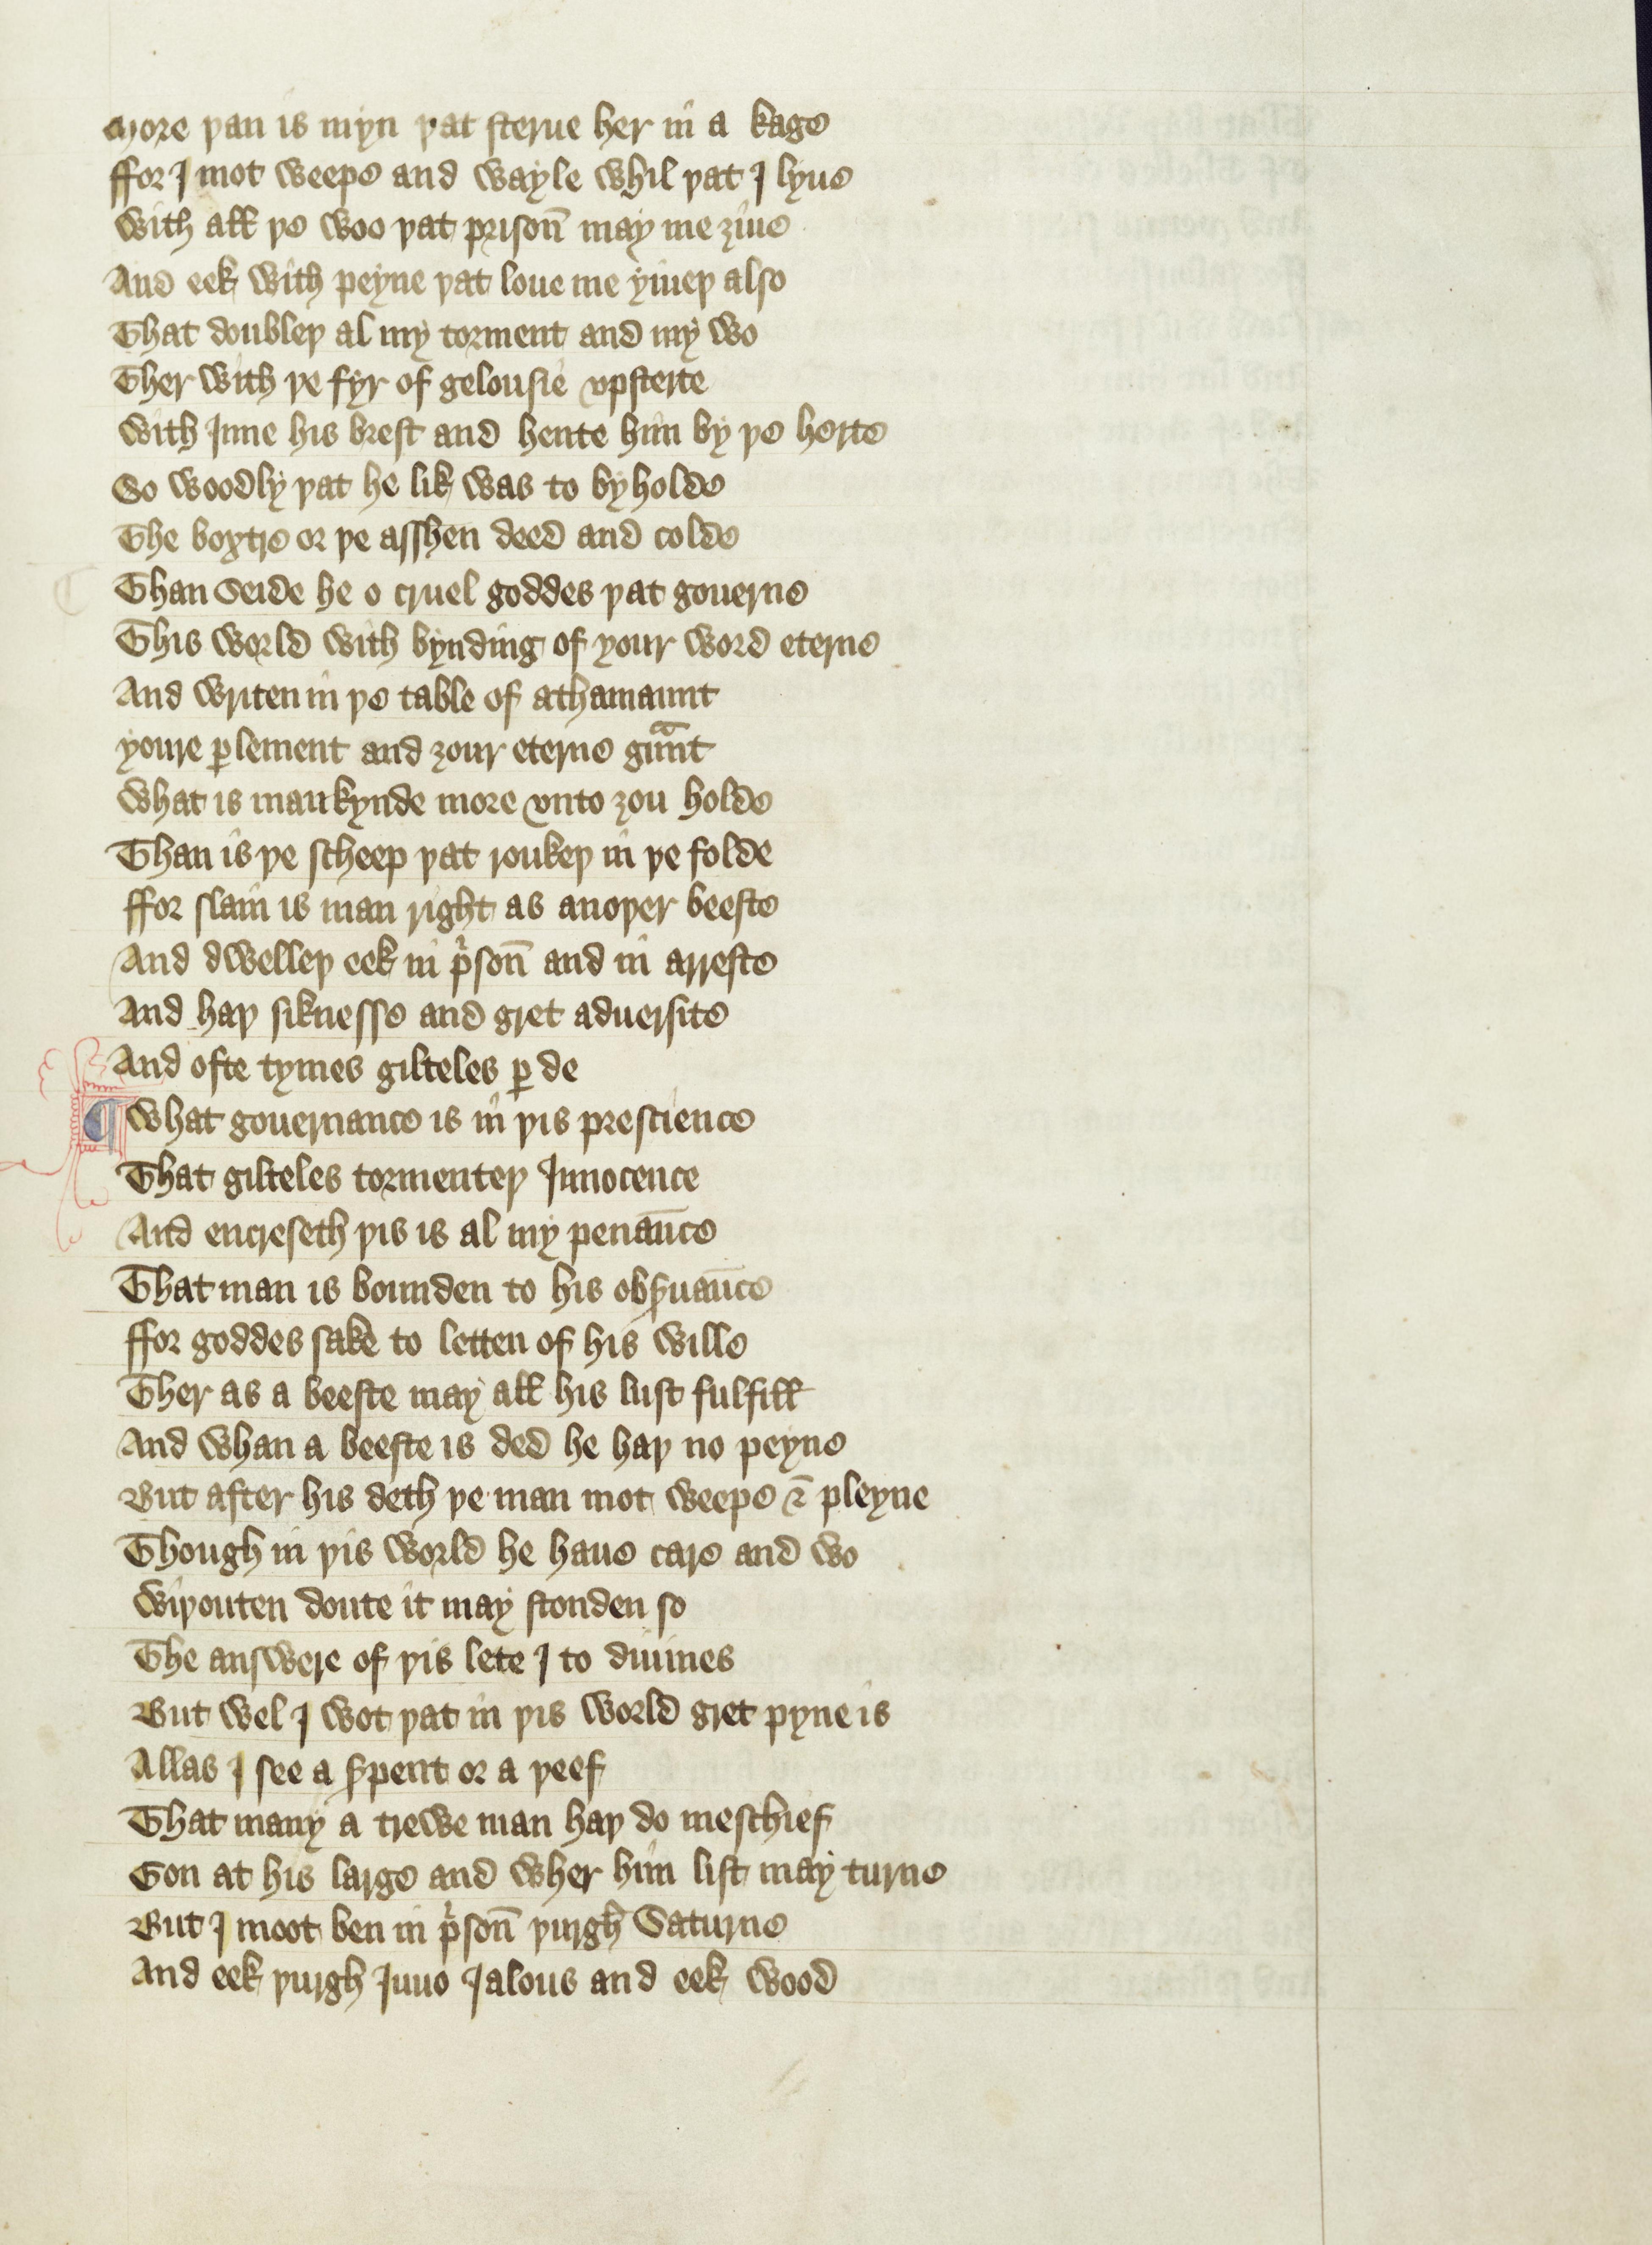 More þan is myn þat sterue her in a kage
ffor I mot weepe and wayle whil þat I lyue
With all þe woo þat prisoun̄ may me ȝiue
And eek with peyne þat loue me yiueþ also
That doubleþ al my torment and my wo
Ther with þe fyr of gelousie vpsterte
With Inne his brest and hente him by þe herte
So woodly þat he lik was to byholde
The boxtre or þe asshen deed and colde
Than seide he o cruel goddes þat gouerne
This world with bynding of your word eterne
And writen in þe table of athamaunt
youre ꝑlement and ȝour eterne gͣunt
What is mankynde more vnto ȝou holde
Than is þe scheep þat roukeþ in þe folde
ffor slain is man right as anoþer beeste
And dwelleþ eek in pͥsoun̄ and in arreste
And haþ siknesse and gret aduersite
And ofte tymes gilteles ꝑ de
¶ What gouernance is in þis prescience
That gilteles tormenteþ Innocence
And encreseth þis is al my penaūce
That man is bounden to his obs̕uaūce
ffor goddes sake to letten of his wille
Ther as a beeste may all his lust fulfill
And whan a beeste is ded he haþ no peyne
But after his deth þe man mot weepe ⁊ pleyne
Though in þis world he haue care and wo
Wiþouten doute it may stonden so
The answere of þis lete I to diuines
But wel I wot þat in þis world gret pyne is
Allas I see a s̕pent or a þeef
That many a trewe man haþ do meschief
Gon at his large and wher him list may turne
But I moot ben in pͥsoun̄ þurgh Saturne
And eek þurgh Iuno Ialous and eek wood